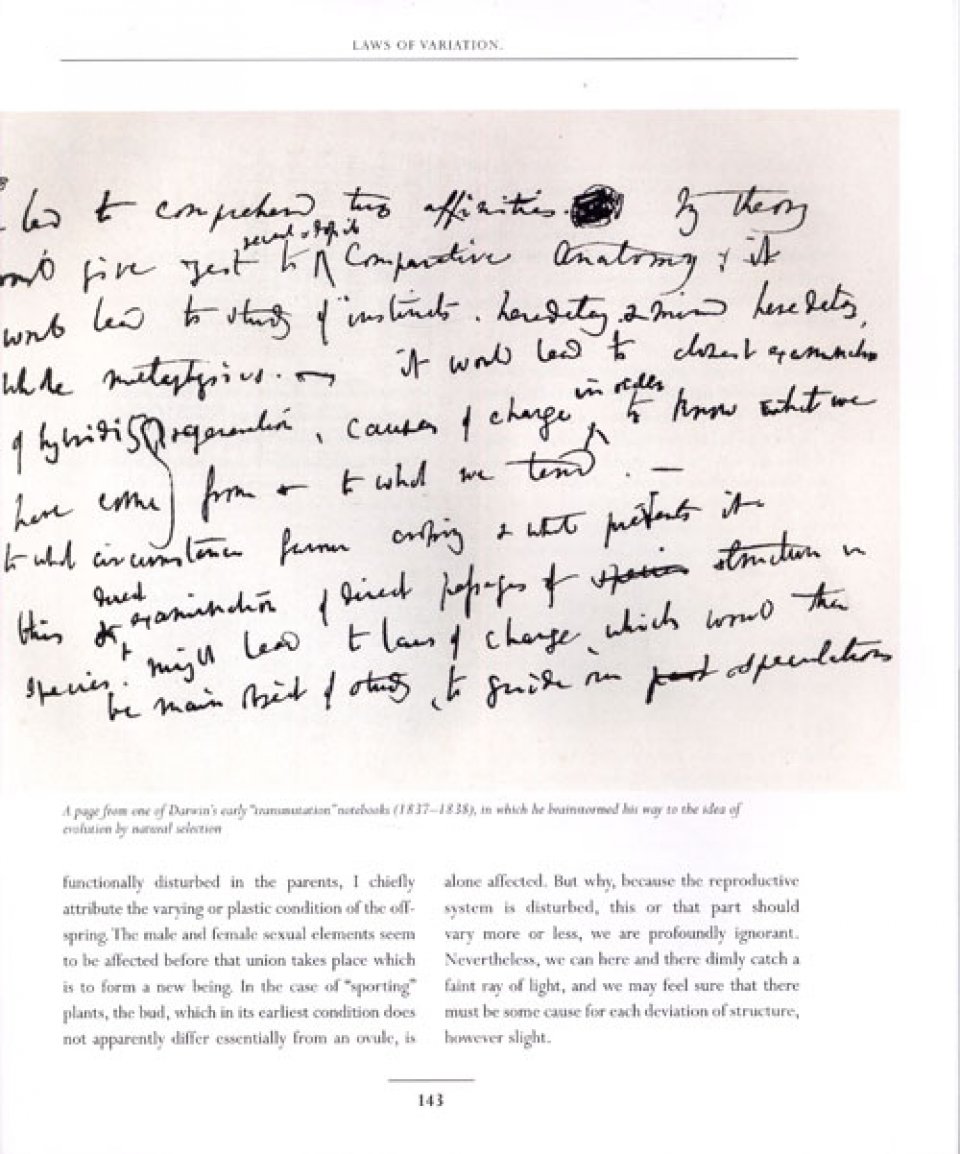 LAWS OF VARIATION.
led to comprehend true affinities. My theory
would give zest to recent & fossil Comparative Anatomy, & it
would lead to study of instincts. heredetary. & mind heredetary,
whole metaphysics. — it would lead to closest examination
of hybridity regeneration, causes of change in order to know what we
have come from & to what we tend. —
to what circumstances favour crossing & what prevents it —
this & direct examination of direct passages of species structure in
species. might lead to laws of change, which would then
be main object of study, to guide our past speculations
A page from one of Darwin's early "transmutation" notebooks (1837–1838), in which he brainstormed his way to the idea of
evolution by natural selection
functionally disturbed in the parents, I chiefly
attribute the varying or plastic condition of the off-
spring. The male and female sexual elements seem
to be affected before that union takes place which
is to form a new being. In the case of "sporting"
plants, the bud, which in its earliest condition does
not apparently differ essentially from an ovule, is
alone affected. But why, because the reproductive
system is disturbed, this or that part should
vary more or less, we are profoundly ignorant.
Nevertheless, we can here and there dimly catch a
faint ray of light, and we may feel sure that there
must be some cause for each deviation of structure,
however slight.
143